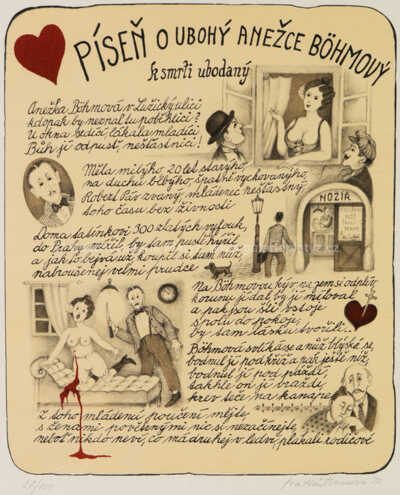 PÍSEŇ O UBOHÝ ANEŽCE BÖHMOVÝ
k smrti ubodaný
Anežka Böhmová v Lužický ulici
kdopak by neznal tu poběhlici?
U okna sedíc, lákala mladíci,
Bůh jí odpusť, nešťastnici!
Měla milýho, 20 let starýho,
na duchu blbýho, špatně vychovanýho,
Robert Pár zvaný, mládenec nešťastný,
toho času bez živnosti
NOŽÍŘ
Doma tatínkovi 300 zlatých vyfouk,
do Prahy mířil, by tam pustě hýřil
a jak to bejvá už koupil si tam nůž,
nabroušenej velmi prudce
Na Böhmovou kýv, na zem si odpliv,
korunu jí dal by jej miloval
a pak jsou šli vstoje
spolu do pokoje,
by tam lásku tvořili...
Böhmová svlíká se a nůž blýská se,
bodnul ji pod kříž a pak ještě níž,
bodnul ji pod paždí,
takhle on jí vraždí,
krev teče na kanape
Z toho mládenci poučení mějte,
s ženami pověstnými nic si nezačínejte,
neboť nikdo neví, co má druhej v ledví, plakali rodičové